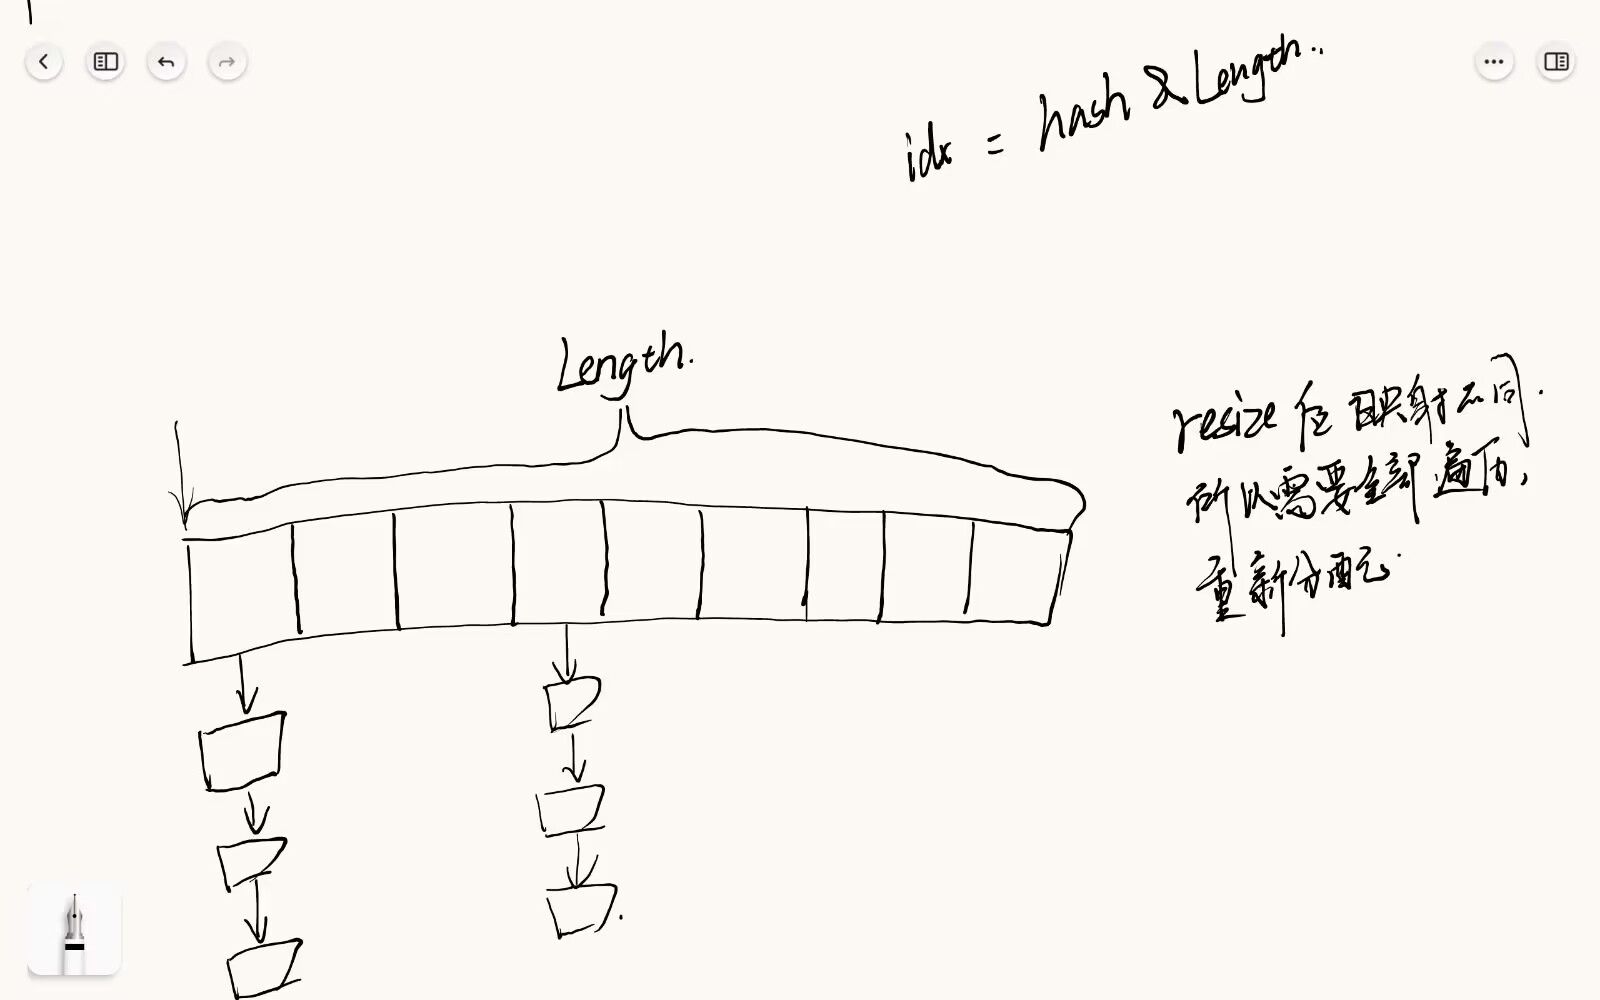 idx = hash & Length..
Length.
resize 后 映射不同.
所以需要全部遍历,
重新分配.